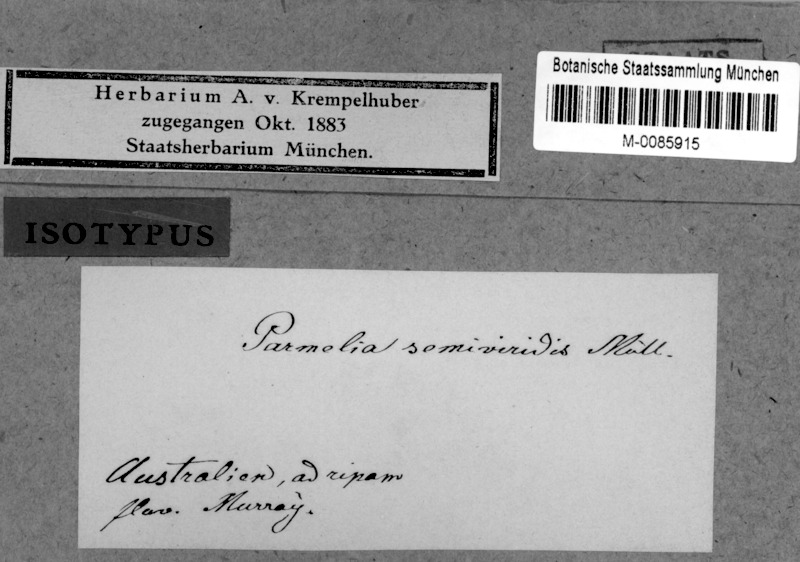 STAATS
Botanische Staatssammlung München
M-0085915
Herbarium A. v. Krempelhuber
zugegangen Okt. 1883
Staatsherbarium München.
ISOTYPUS
Parmelia semiviridis Müll.
Australien, ad ripam
flav. Murray.